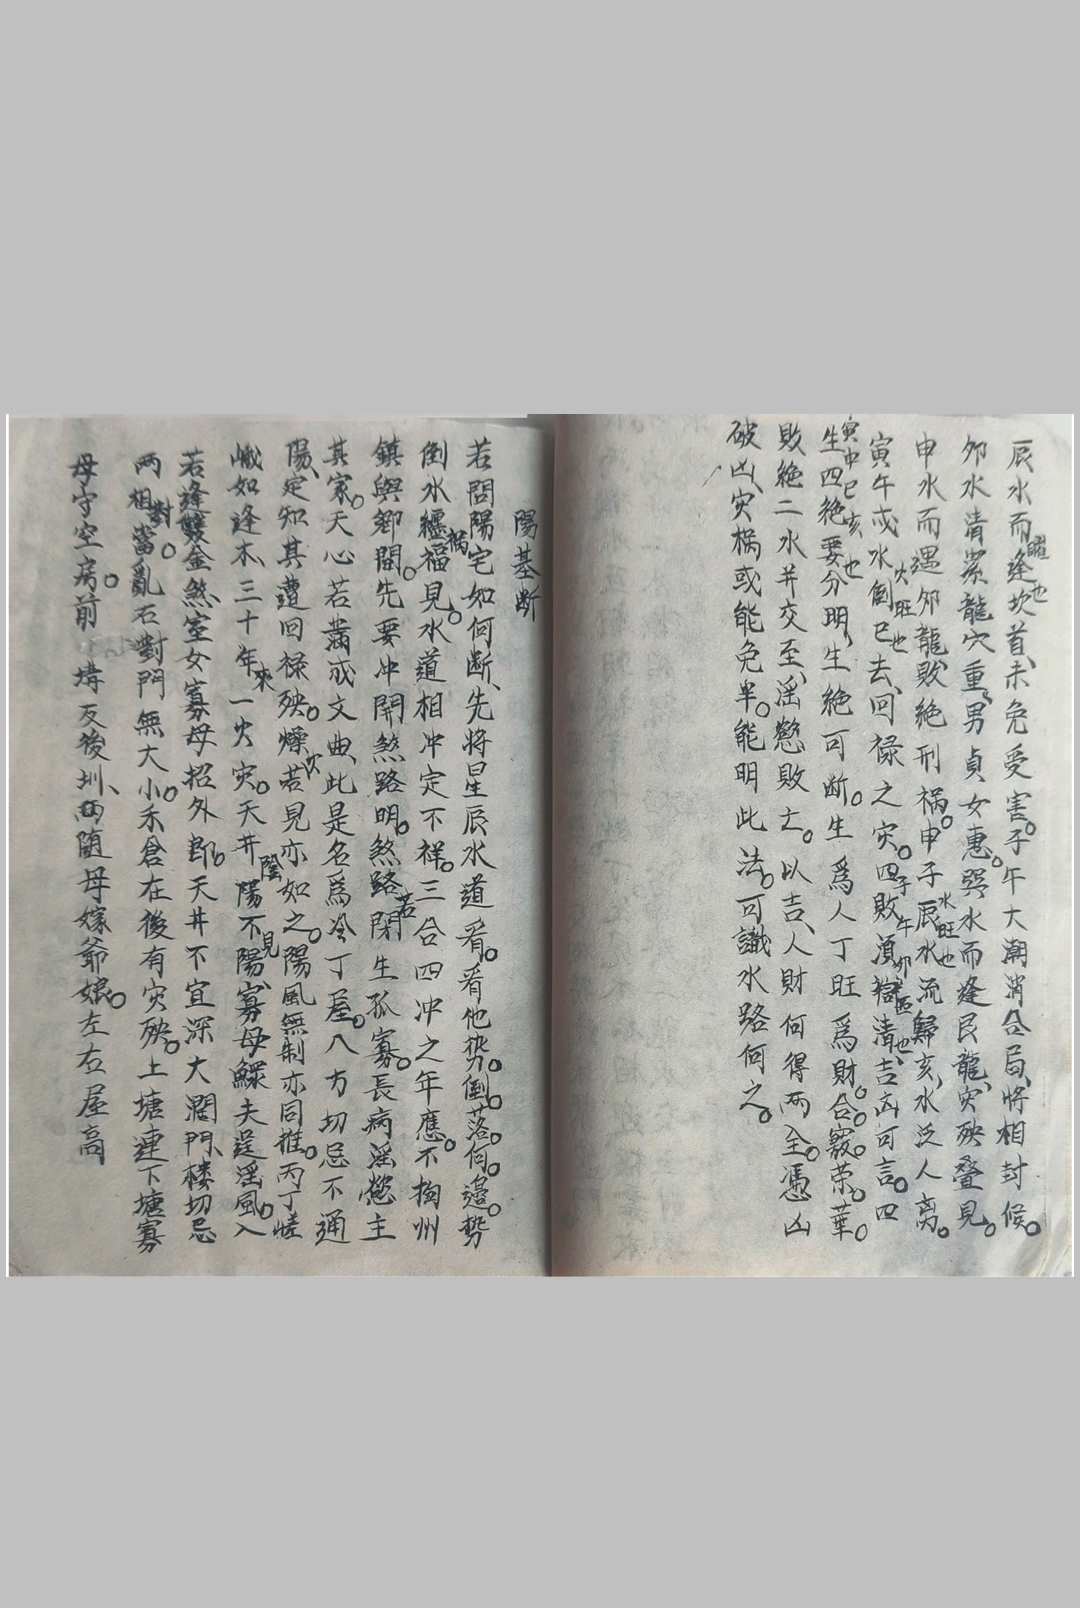 辰水而逢坎首、未免受害。子午大潮消合局、將相封候。
曜也
夘水清縈龍穴重、男貞女惠。巽水而逢艮龍、灾殃叠見。
申水而遇夘龍、敗絶刑祸。申子辰水流歸亥、水泛人离。
水旺也
寅午戍水倒巳去、回禄之灾。四敗湏嶽清、吉凶可言。四
火旺也
子午卯酉也
生四絶要分明、生絶可断。生爲人丁旺爲財。合竅荣華。
寅申巳亥也
敗絶二水并交至、滛慾敗亡。以吉、人財何得两全。憑凶
破凶、灾祸或能免半。能明此法。可識水路何之。
陽基断
若問陽宅如何断、先將星辰水道看。看他势倒落何邉。势
倒水纏福見。水道相冲定不祥。三合四冲之年應。不拘州
祸
鎮與鄉間。先要冲開煞路明。煞路閉生孤寡。長病滛慾主
若
其家。天心若蒲成文曲、此是名爲冷丁屋。八方切忌不通
陽、定知其遭回禄殃。燥若見亦如之。陽風無制亦同推。丙丁嵯
火
峨如逢木、三十年一火灾。天井陽不陽、寡母鰥夫逞滛風。入
來
陰
見
若逢簍金煞、室女寡母招外郎。天井不宜深大濶、門楼切忌
两相當。亂石對門無大小。禾倉在後有灾殃。上塘連下塘寡
對
母守空房。前塆反後圳、两随母嫁爺娘。左右屋高